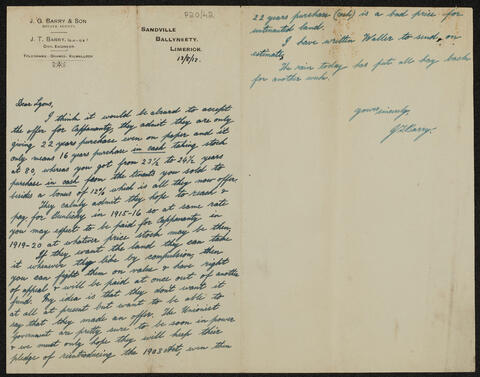 J. G. BARRY & SON
ESTATE AGENTS
J. T. BARRY,
CIVIL ENGINEER
TELEGRAMS - GRANGE, KILMALLOCK
P20/42
SANDVILLE
BALLYNEETY.
LIMERICK.
13/8/12.
Dear Lyons,
I think it would be absurd to accept
the offer for Cappananty, they admit they are only
giving 22 years purchase even on paper and it
only means 16 years purchase in cash taking stock
at 80, whereas you got from 23½ to 24½ years
purchase in cash from the tenants you sold to
besides a bonus of 12% which is all they now offer
They calmly admit they hope to reach &
pay for in 1915-16 so at same rate
you may expect to be paid for Cappananty in
1919-20 at whatever price stock may be then,
If they want the land they can take
it whenever they like by compulsion, then
you can fight them on value & have right
of appeal & will be paid at once out of another
fund. My idea is that they don't want it
at all at present but want to be able to
say that they made an offer. The Unionist
Government are pretty sure to be soon in power
& we must only hope they will keep their
pledge of reintroducing the 1903 Act, even then
22 years purchase (cash) is a bad price for
untenanted land.
I have written Waller to send on
estimate,
The rain today has put all hay back
for another week.
Yours sincerely
J G Barry.